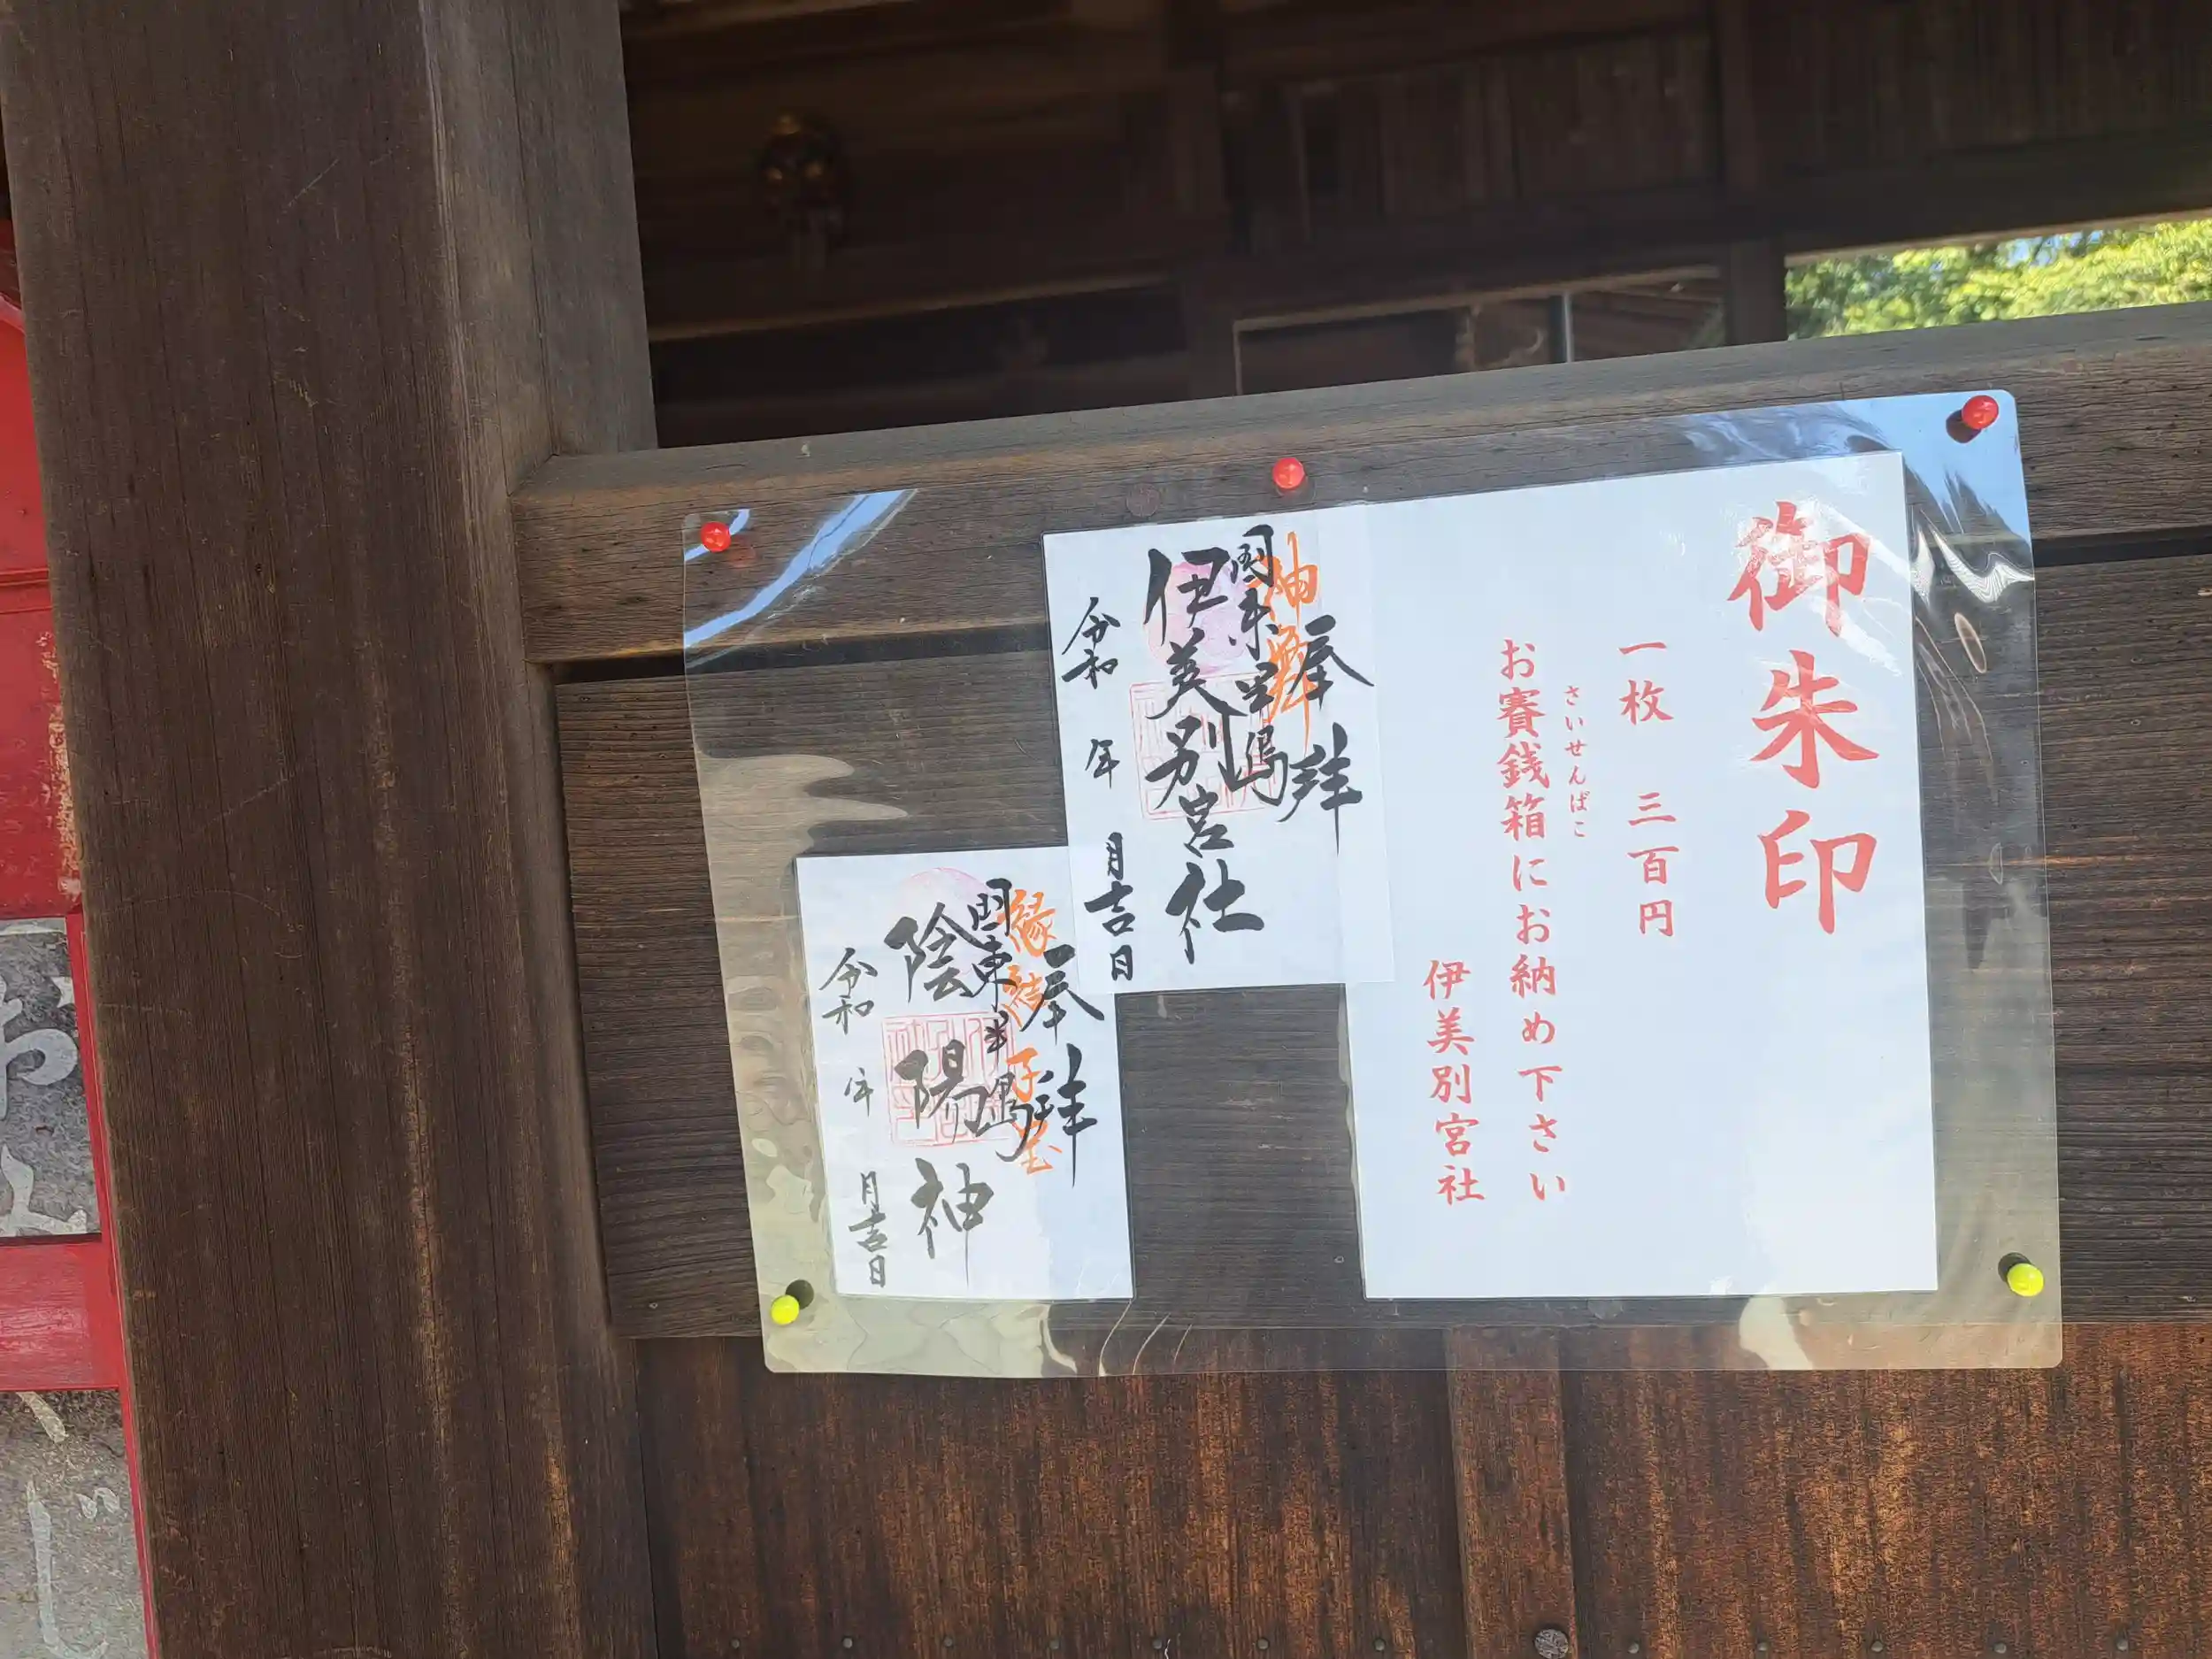 御朱印
一枚 三百円
さいせんばこ
お賽銭箱にお納め下さい
伊美別宮社
奉拝
伊美別宮社
令和 年 月吉日
縁結 子宝
奉拝
陰陽神
令和 年 月吉日